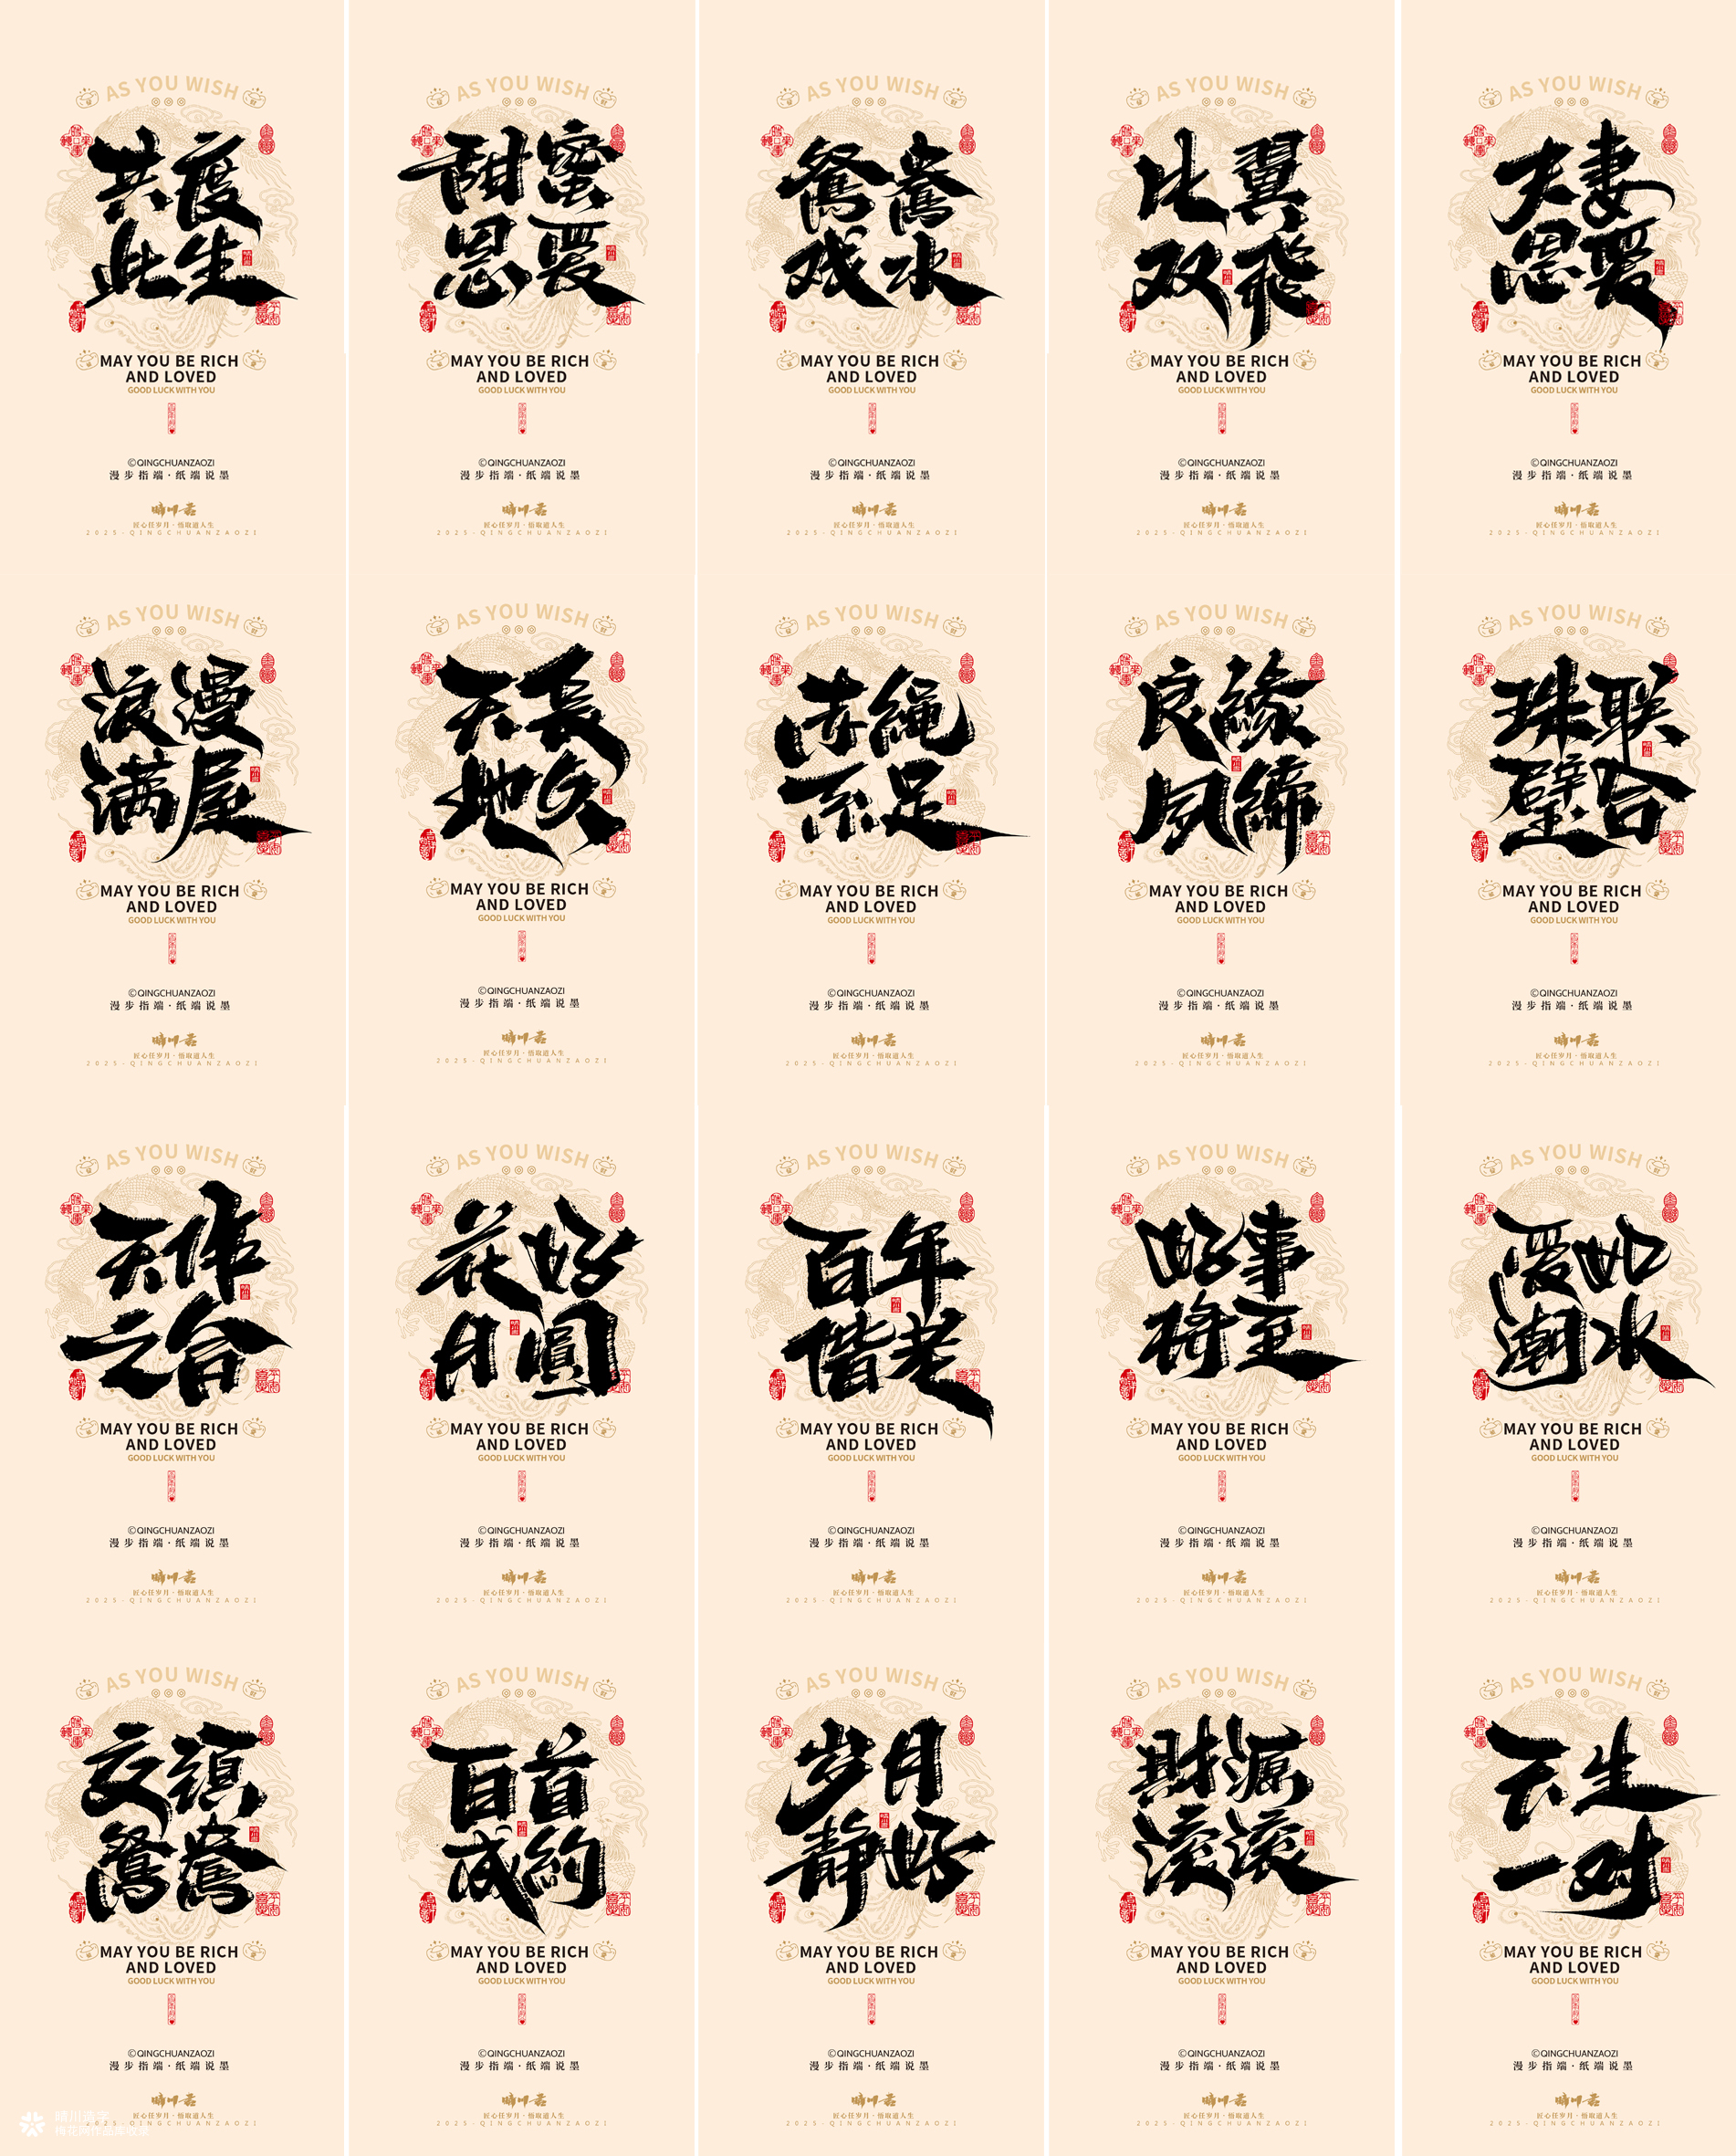 AS YOU WISH
共度
此生
MAY YOU BE RICH
AND LOVED
GOOD LUCK WITH YOU
©QINGCHUANZAOZI
漫步指端·纸端说墨
匠心任岁月·悟取道人生
2025-QINGCHUANZAOZI
AS YOU WISH
甜蜜
恩爱
MAY YOU BE RICH
AND LOVED
GOOD LUCK WITH YOU
©QINGCHUANZAOZI
漫步指端·纸端说墨
匠心任岁月·悟取道人生
2025-QINGCHUANZAOZI
AS YOU WISH
鴛鴦
戏水
MAY YOU BE RICH
AND LOVED
GOOD LUCK WITH YOU
©QINGCHUANZAOZI
漫步指端·纸端说墨
匠心任岁月·悟取道人生
2025-QINGCHUANZAOZI
AS YOU WISH
比翼
双飛
MAY YOU BE RICH
AND LOVED
GOOD LUCK WITH YOU
©QINGCHUANZAOZI
漫步指端·纸端说墨
匠心任岁月·悟取道人生
2025-QINGCHUANZAOZI
AS YOU WISH
夫妻
恩爱
MAY YOU BE RICH
AND LOVED
GOOD LUCK WITH YOU
©QINGCHUANZAOZI
漫步指端·纸端说墨
匠心任岁月·悟取道人生
2025-QINGCHUANZAOZI
AS YOU WISH
浪漫
满屋
MAY YOU BE RICH
AND LOVED
GOOD LUCK WITH YOU
©QINGCHUANZAOZI
漫步指端·纸端说墨
匠心任岁月·悟取道人生
2025-QINGCHUANZAOZI
AS YOU WISH
天長
地久
MAY YOU BE RICH
AND LOVED
GOOD LUCK WITH YOU
©QINGCHUANZAOZI
漫步指端·纸端说墨
匠心任岁月·悟取道人生
2025-QINGCHUANZAOZI
AS YOU WISH
赤繩
系足
MAY YOU BE RICH
AND LOVED
GOOD LUCK WITH YOU
©QINGCHUANZAOZI
漫步指端·纸端说墨
匠心任岁月·悟取道人生
2025-QINGCHUANZAOZI
AS YOU WISH
良緣
夙締
MAY YOU BE RICH
AND LOVED
GOOD LUCK WITH YOU
©QINGCHUANZAOZI
漫步指端·纸端说墨
匠心任岁月·悟取道人生
2025-QINGCHUANZAOZI
AS YOU WISH
珠联
璧合
MAY YOU BE RICH
AND LOVED
GOOD LUCK WITH YOU
©QINGCHUANZAOZI
漫步指端·纸端说墨
匠心任岁月·悟取道人生
2025-QINGCHUANZAOZI
AS YOU WISH
天作
之合
MAY YOU BE RICH
AND LOVED
GOOD LUCK WITH YOU
©QINGCHUANZAOZI
漫步指端·纸端说墨
匠心任岁月·悟取道人生
2025-QINGCHUANZAOZI
AS YOU WISH
花好
月圓
MAY YOU BE RICH
AND LOVED
GOOD LUCK WITH YOU
©QINGCHUANZAOZI
漫步指端·纸端说墨
匠心任岁月·悟取道人生
2025-QINGCHUANZAOZI
AS YOU WISH
百年
偕老
MAY YOU BE RICH
AND LOVED
GOOD LUCK WITH YOU
©QINGCHUANZAOZI
漫步指端·纸端说墨
匠心任岁月·悟取道人生
2025-QINGCHUANZAOZI
AS YOU WISH
好事
将至
MAY YOU BE RICH
AND LOVED
GOOD LUCK WITH YOU
©QINGCHUANZAOZI
漫步指端·纸端说墨
匠心任岁月·悟取道人生
2025-QINGCHUANZAOZI
AS YOU WISH
爱如
潮水
MAY YOU BE RICH
AND LOVED
GOOD LUCK WITH YOU
©QINGCHUANZAOZI
漫步指端·纸端说墨
匠心任岁月·悟取道人生
2025-QINGCHUANZAOZI
AS YOU WISH
交頸
鴛鴦
MAY YOU BE RICH
AND LOVED
GOOD LUCK WITH YOU
©QINGCHUANZAOZI
漫步指端·纸端说墨
匠心任岁月·悟取道人生
2025-QINGCHUANZAOZI
AS YOU WISH
百首
成約
MAY YOU BE RICH
AND LOVED
GOOD LUCK WITH YOU
©QINGCHUANZAOZI
漫步指端·纸端说墨
匠心任岁月·悟取道人生
2025-QINGCHUANZAOZI
AS YOU WISH
岁月
静好
MAY YOU BE RICH
AND LOVED
GOOD LUCK WITH YOU
©QINGCHUANZAOZI
漫步指端·纸端说墨
匠心任岁月·悟取道人生
2025-QINGCHUANZAOZI
AS YOU WISH
財源
滚滚
MAY YOU BE RICH
AND LOVED
GOOD LUCK WITH YOU
©QINGCHUANZAOZI
漫步指端·纸端说墨
匠心任岁月·悟取道人生
2025-QINGCHUANZAOZI
AS YOU WISH
天生
一对
MAY YOU BE RICH
AND LOVED
GOOD LUCK WITH YOU
©QINGCHUANZAOZI
漫步指端·纸端说墨
匠心任岁月·悟取道人生
2025-QINGCHUANZAOZI
晴川造字
梅花网作品库收录